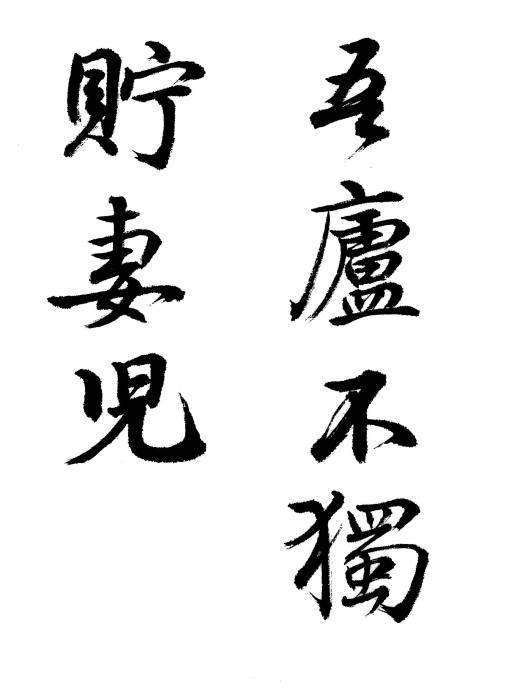 吾廬不獨
貯妻児